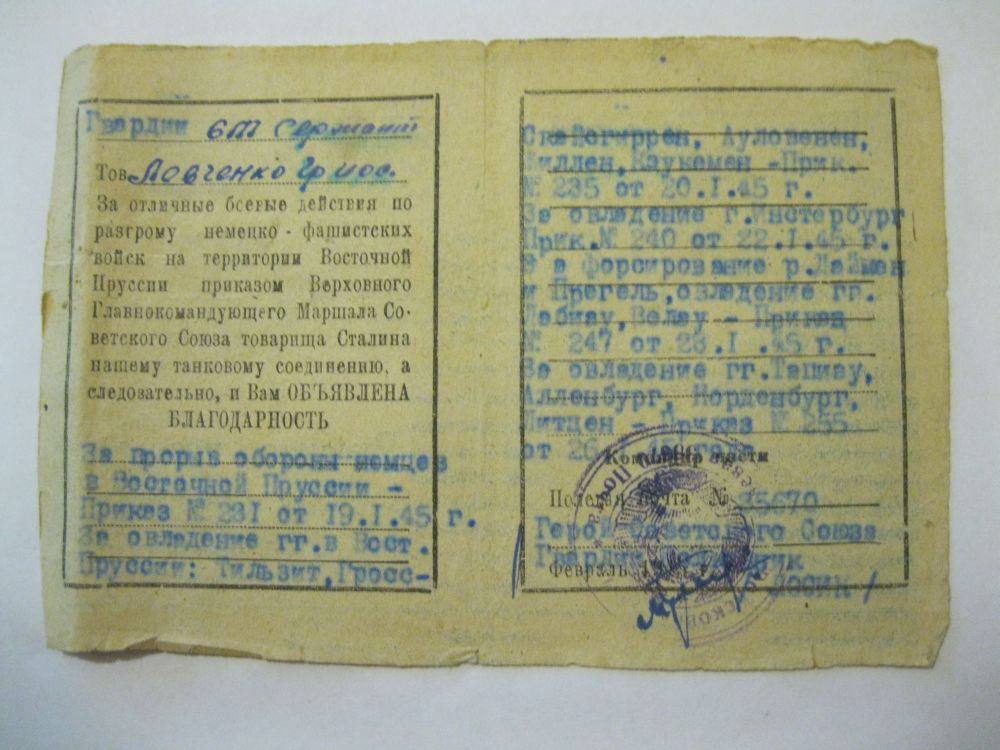 Гвардии ст сержант
Тов. Левченко Гр иос.
За отличные боевые действия по
разгрому немецко-фашистских
войск на территории Восточной
Пруссии приказом Верховного
Главнокомандующего Маршала Со-
ветского Союза товарища Сталина
нашему танковому соединению, а
следовательно, и Вам ОБЪЯВЛЕНА
БЛАГОДАРНОСТЬ
За прорыв обороны немцев
в Восточной Пруссии -
Приказ № 231 от 19.I.45 г.
За овладение гг.в Вост.
Пруссии: Тильзит,Гросс-
Скайсгиррен, Ауловенен,
Жиллен, Каукемен -Прик.
№ 235 от 20.I.45 г.
За овладение г.Инстербург
Прик.№ 240 от 22.I.45 г.
За форсирование р.Даймен
и Прегель,овладение гг.
Лабиау,Велау - Приказ
№ 247 от 23.I.45г.
За овладение гг.Тапиау,
Алленбург, Норденбург,
Литцен - Приказ № 255
от 26
Командир части
Полевая почта № 35670
Герой Советского Союза
Гвардии
Февраль
/ ЛОСИК /